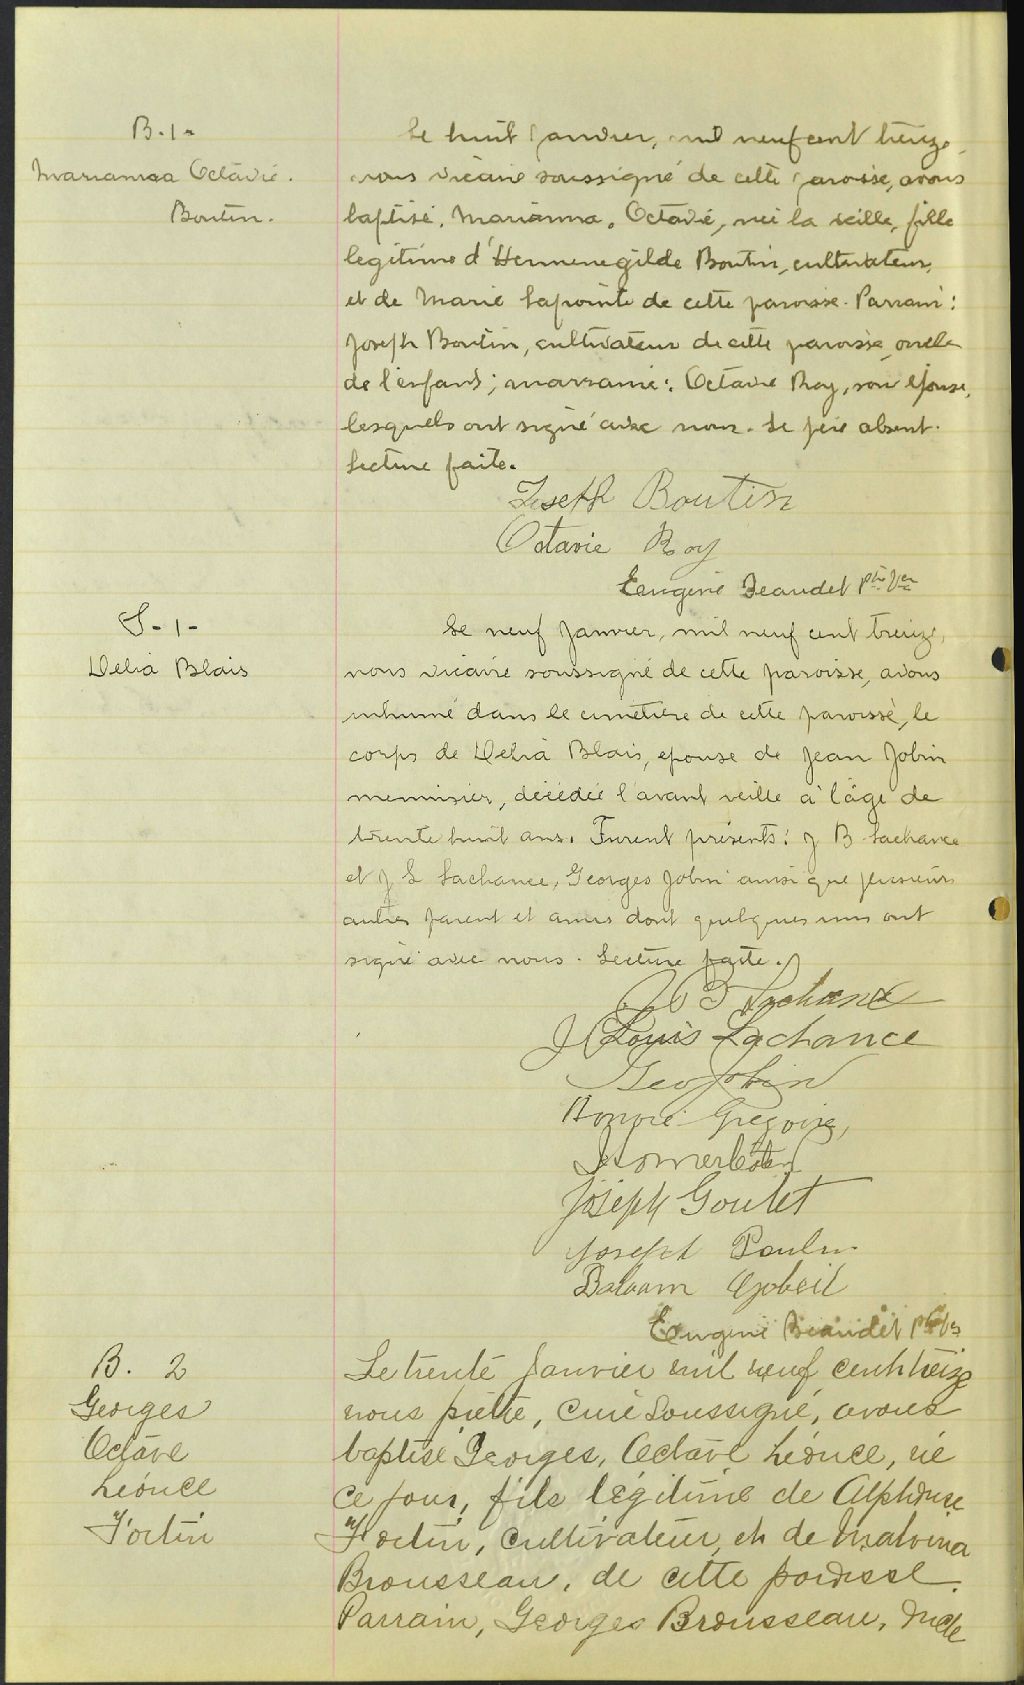 B-1-
Marianna Octavie.
Boutin.
Le huit janvier, mil neuf cent treize,
nous vicaire soussigné de cette paroisse, avons
baptisé, Marianna, Octavie, née la veille, fille
legitime d'Hermenegilde Boutin, cultivateur,
et de Marie Lapointe de cette paroisse. Parrain:
Joseph Boutin, cultivateur de cette paroisse, oncle
de l'enfant; marraine: Octavie Roy, son épouse,
lesquels ont signé avec nous. Le père absent.
Lecture faite.
Joseph Boutin
Octavie Roy
Eugène Beaudet ptre Vic
S-1-
Delia Blais
Le neuf janvier, mil neuf cent treize,
nous vicaire soussigné de cette paroisse, avons
inhumé dans le cimetière de cette paroisse, le
corps de Delia Blais, epouse de Jean Jobin
menuisier, décédée l'avant veille à l'âge de
trente huit ans. Furent présents: J B Lachance
et J L Lachance, Georges Jobin ainsi que plusieurs
autres parent et amis dont quelques uns ont
signé avec nous. Lecture faite.
J B Lachance
J Louis Lachance
Geo Jobin
Honoré Gregoire,
Joseph Goulet
Joseph Poulin
Balaam Gobeil
Eugène Beaudet ptre Vic
B. 2
Georges
Octave
Léonce
Fortin
Le trente Janvier mil neuf cent treize
nous prêtre, Curé Soussigné, avons
baptisé Georges, Octave Léonce, né
ce jour, fils légitime de Alphonse
Fortin, Cultivateur, et de Malvina
Brousseau, de cette paroisse.
Parrain, Georges Brousseau, Oncle